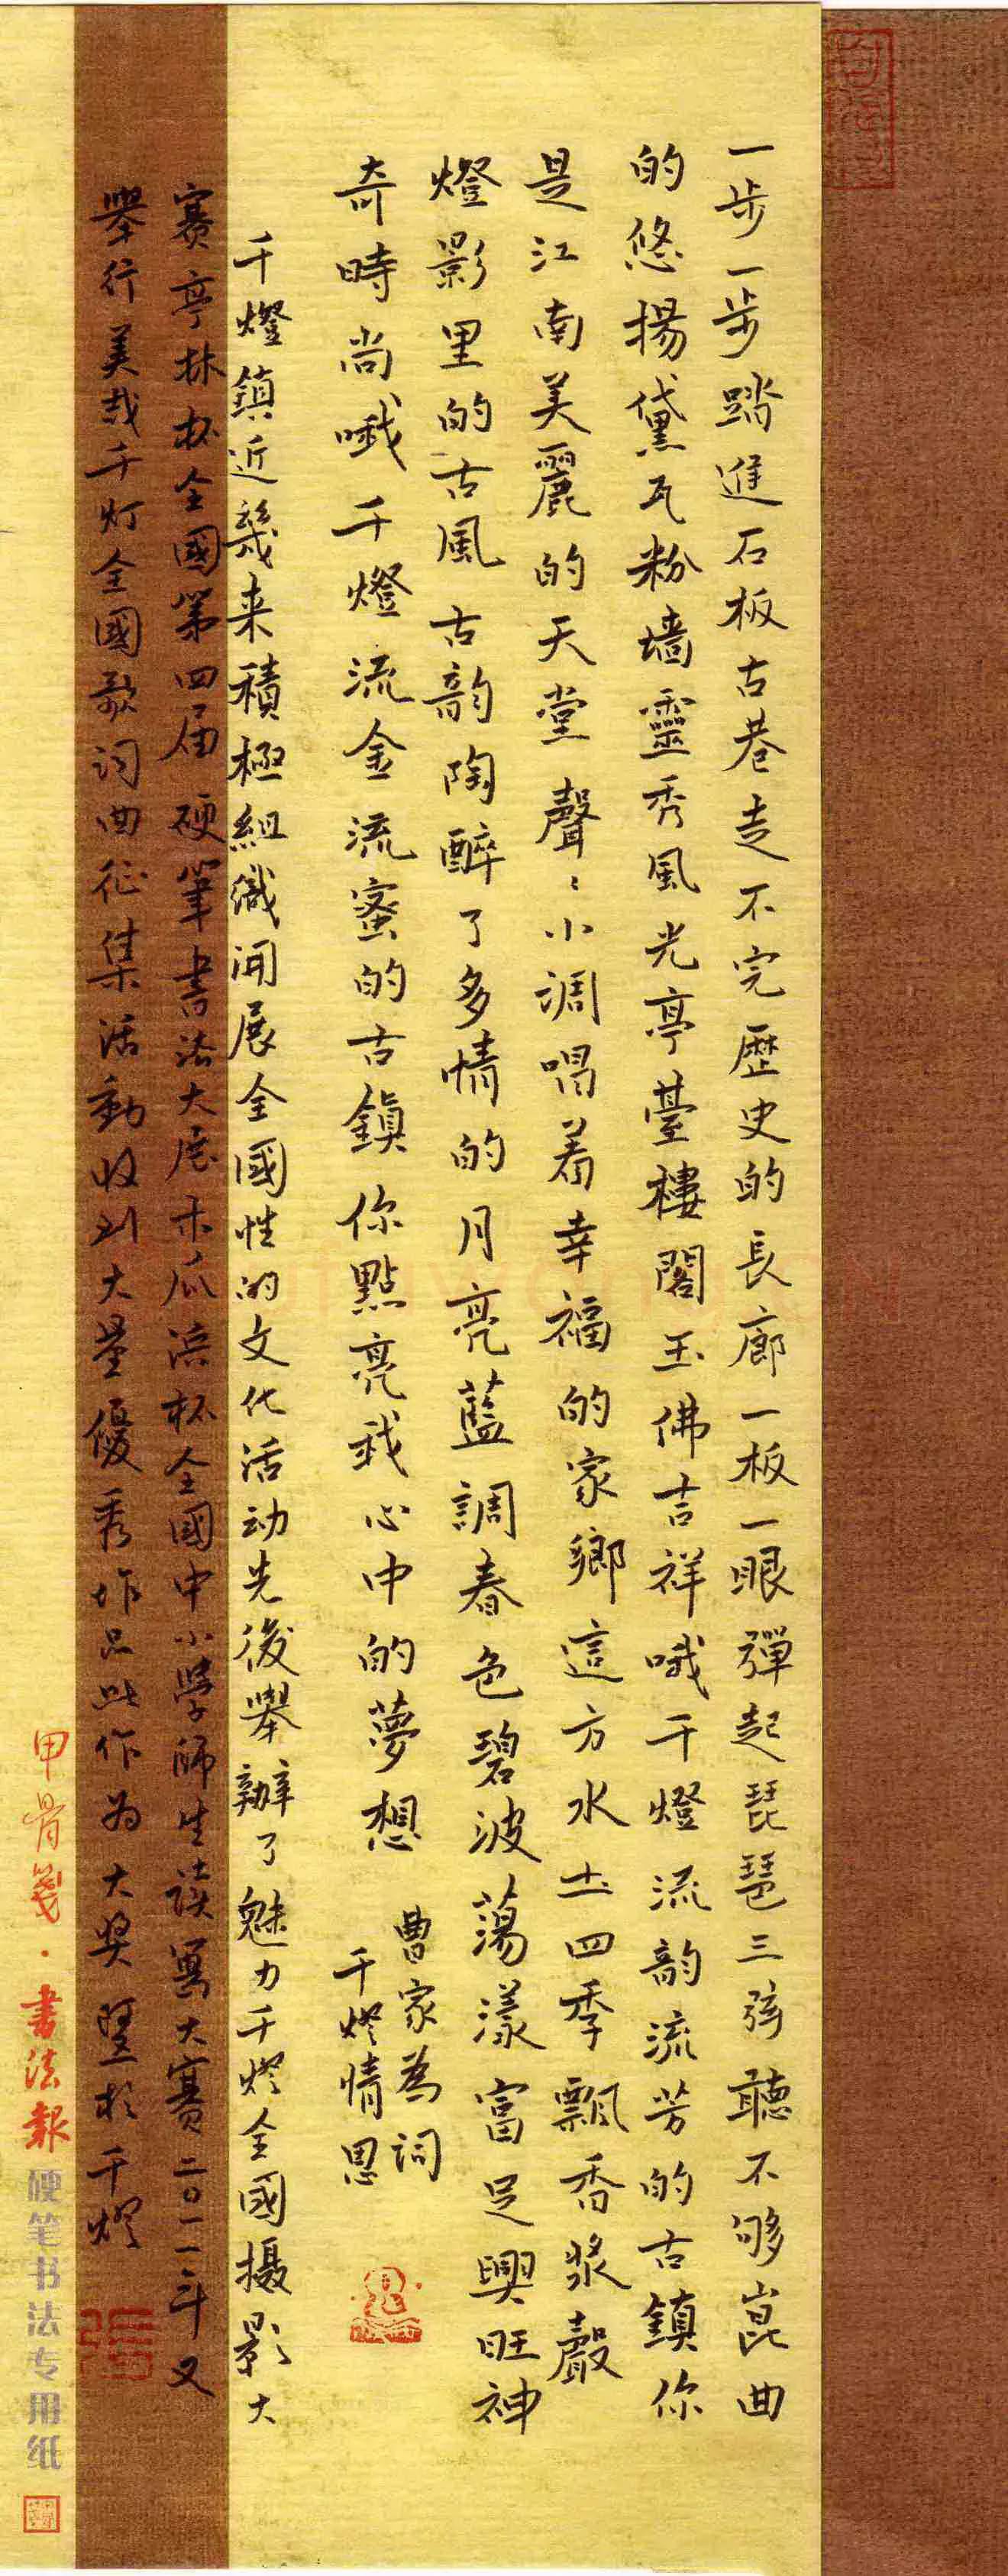 一步一步踏進石板古巷走不完歷史的長廊一板一眼彈起琵琶三弦聽不够崑曲
的悠揚黛瓦粉墙靈秀風光亭臺樓閣玉佛吉祥哦千燈流韵流芳的古鎮你
是江南美麗的天堂聲〻小調唱着幸福的家鄉這方水土四季飄香漿聲
燈影里的古風古韵陶醉了多情的月亮藍調春色碧波蕩漾富足興旺神
奇時尚哦千燈流金流蜜的古鎮你點亮我心中的夢想
曹家為詞
千燈情思
千燈鎮近幾来積極組織開展全國性的文化活动先後舉辦了魅力千燈全國攝影大
賽亭林杯全國第四届硬筆書法大展木瓜浜杯全國中小學師生讀寫大賽二〇一一年又
舉行美哉千灯全國歌詞曲征集活動收到大量優秀作品此作为大奖暨於千燈
甲骨箋·書法報
硬笔书法专用纸